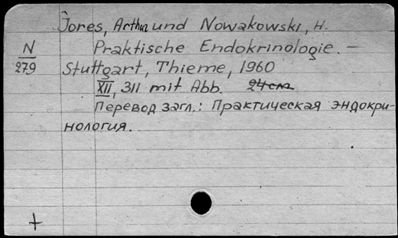 Jores, Arthur und Nowakowski, H.
N
279
Praktische Endokrinologie. –
Stuttgart, Thieme, 1960
XII, 311 mit Abb. 24 см
Перевод загл.: Практическая эндокри-
нология.
+